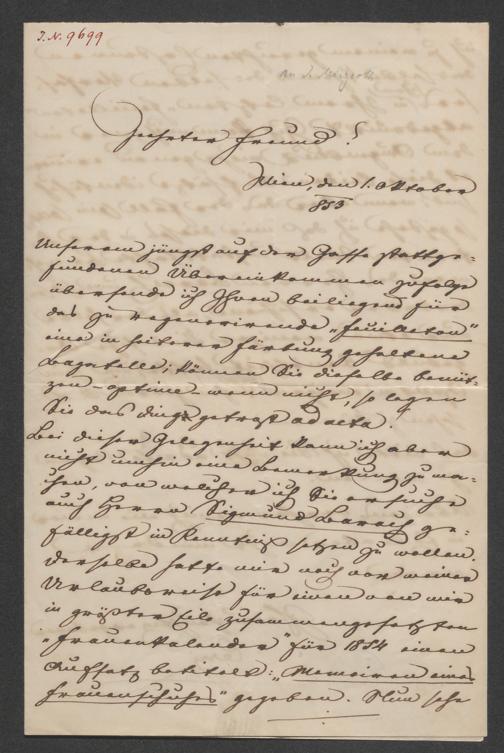 J. N. 9699
Geehrter Freund!
Wien, den 1. Oktober
853
Unserem jüngst auf der Gasse stattge-
fundenen Übereinkommen zufolge
übersende ich Ihnen beiliegend für
das zu regenerirende „Feuilleton“
eine in heiterer Färbung gehaltene
Bagatelle; können Sie dieselbe benüt-
zen – optime – wenn nicht, so legen
Sie das Ding getrost ad acta.
Bei dieser Gelegenheit kann ich aber
nicht umhin eine Bemerkung zu ma-
chen, von welcher ich Sie ersuche
auch Herrn Sigmund Barach ge-
fälligst in Kenntniß setzen zu wollen.
Derselbe hatte mir noch vor meiner
Urlaubsreise für einen von mir
in größter Eile zusammengesetzten
„Frauenkalender“ für 1854 einen
Aufsatz betitelt: „Memoiren eines
Frauenschuhes“ gegeben. Nun sehe